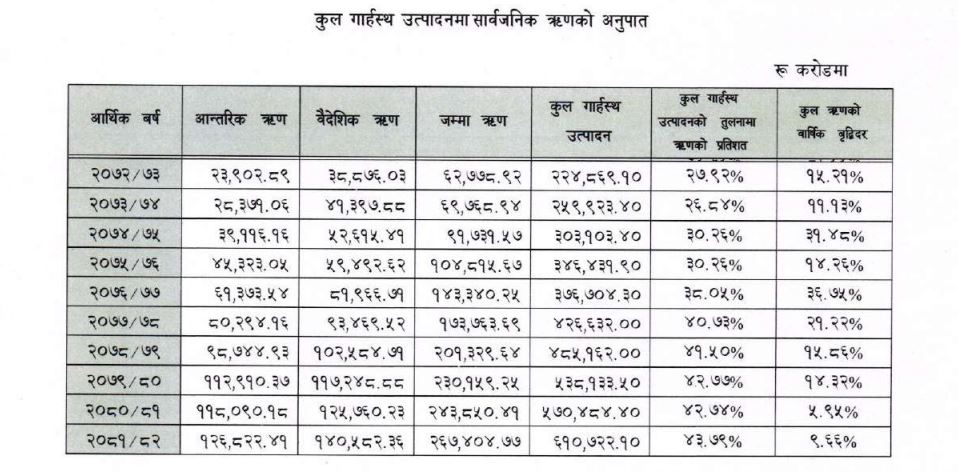 कुल गार्हस्थ उत्पादनमा सार्वजनिक ऋणको अनुपात
रू करोडमा
आर्थिक वर्ष आन्तरिक ऋण वैदेशिक ऋण जम्मा ऋण कुल गार्हस्थ उत्पादन कुल गार्हस्थ उत्पादनको तुलनामा ऋणको प्रतिशत कुल ऋणको वार्षिक वृद्दिदर
२०७२/७३ २३,९०२.८९ ३८,८७६.०३ ६२,७७८.९२ २२४,८६९.१० २७.९२% १५.२१%
२०७३/७४ २८,३७१.०६ ४१,३९७.८८ ६९,७६८.९४ २५९,९२३.४० २६.८४% ११.१३%
२०७४/७५ ३९,११६.१६ ५२,६१५.४१ ९१,७३१.५७ ३०३,१०३.४० ३०.२६% ३१.४८%
२०७५/७६ ४५,३२३.०५ ५९,४९२.६२ १०४,८१५.६७ ३४६,४३१.९० ३०.२६% १४.२६%
२०७६/७७ ६१,३७३.५४ ८१,९६६.७१ १४३,३४०.२५ ३७६,७०४.३० ३८.०५% ३६.७५%
२०७७/७८ ८०,२९४.१६ ९३,४६९.५२ १७३,७६३.६९ ४२६,६३२.०० ४०.७३% २१.२२%
२०७८/७९ ९८,७४४.९३ १०२,५८४.७१ २०१,३२९.६४ ४८५,१६२.०० ४१.५०% १५.८६%
२०७९/८० ११२,९१०.३७ ११७,२४८.८८ २३०,१५९.२५ ५३८,१३३.५० ४२.७७% १४.३२%
२०८०/८१ ११८,०९०.१८ १२५,७६०.२३ २४३,८५०.४१ ५७०,४८४.४० ४२.७४% ५.९५%
२०८१/८२ १२६,८२२.४१ १४०,५८२.३६ २६७,४०४.७७ ६१०,७२२.१० ४३.७९% ९.६६%